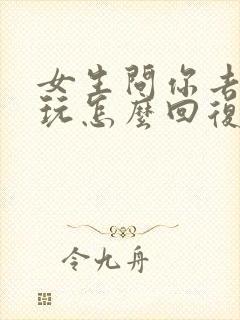 女生問你去
玩怎麼回復
令九舟